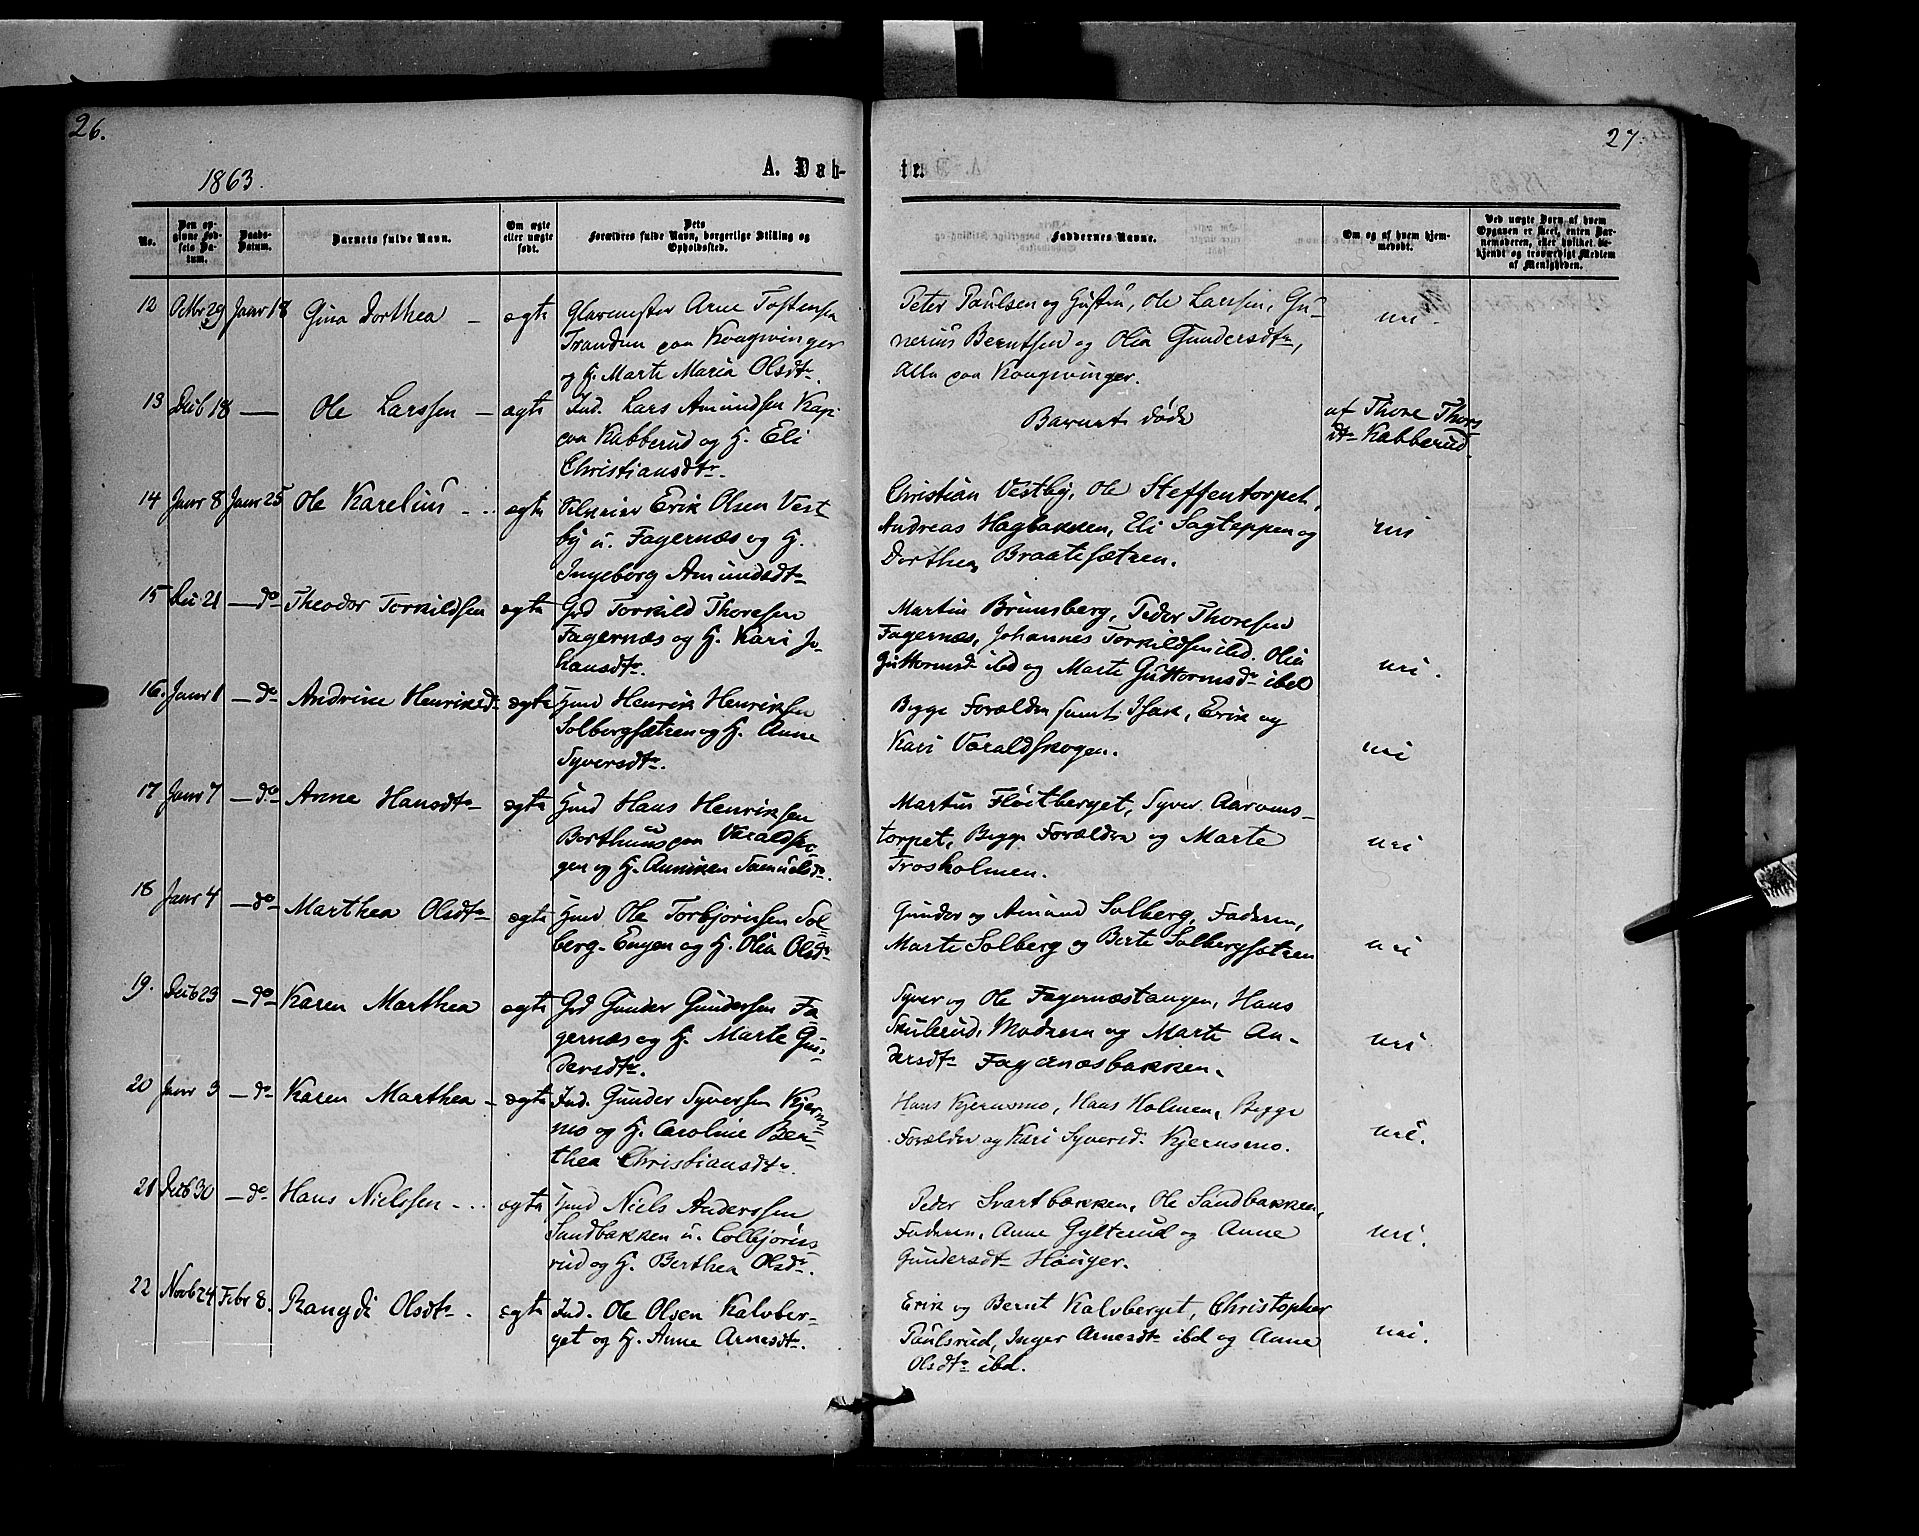 26.
1863.
A. Døb-
No.
Den op-
givne Fød-
sels Da-
tum.
Daabs-
Datum.
Barnets fulde Navn.
Om ægte
eller uægte
født.
Dets
Forældres fulde Navn, borgerlige Stilling og
Opholdssted.
12 Octbr 29 Janr 18 Gina Dorthea - ægte Glarmester Arne Tostensen
Tranden paa Kongsvinger
og H. Marte Maria Olsdtr.
13 Decb 18 — Ole Larssen - ægte Ind. Lars Amundsen
paa Kabberud og H. Eli
Christiansdtr.
14 Janr 8 Janr 25 Ole Karelius - ægte Erik Olsen Vest
by u. Fagernæs og H.
Ingeborg Amundsdtr
15 Dec 21 — do Theodor Torkildsen ægte Grd Torkild Thoresen
Fagernæs og H. Kari Jo-
hansdtr.
16. Janr 1 — do Andrine Henriksdr ægte Hmd Henrik Henriksen
Solbergsætren og H. Anne
Syversdtr.
17 Janr 7 — do Anne Hansdtr ægte Hmd Hans Henriksen
Berthuus paa Varaldsko-
gen og H. Anniken Samuelsdr.
18 Janr 4 — do Marthea Olsdtr ægte Hmd Ole Torbjørnsen Sol-
berg-Engen og H. Olia Olsdr
19. Decb 23 — do Karen Marthea ægte Grd Gunder Gundersen Fa
gernæs og H. Marte Gun-
dersdtr.
20 Janr 3 — do Karen Marthea - ægte Ind. Gunder Syversen Kjern-
mo og H. Caroline Ber-
thea Christiansdtr.
21 Decb 30 — do Hans Nielssen - ægte Hmd Niels Anderssen
Sandbakken u. Colbjørns
rud og H. Berthea Olsdr.
22 Novb 24 Febr 8. Rangdi Olsdtr. ægte Ind. Ole Olsen Kalvber-
get og H. Anne Arnesdtr.
27.
te.
Faddernes Navne.
Om og af hvem hjem-
medøbt.
Ved uægte Børn af hvem
Opgaven er skeet, enten Bar-
nemoderen, eller hvilket be-
kjendt og troværdigt Medlem
af Menigheden.
Peter Paulsen og Hustru, Ole Larssen, Gu-
nerius Berntsen og Olia Gundersdtr,
Alle paa Kongsvinger. nei.
Barnet døde af Thore Thors
dtr Kabberud.
Christian Vestby, Ole Steffentorpet,
Andreas Hagbakken, Eli Sagteppen og
Dorthea Braatesætren. nei
Martin Brunsberg, Peder Thoresen
Fagernæs, Johannes Torkildsen ibd. Olia
Guttormsd. ibd og Marte Guttormsdr ibd nei.
Begge Forældre samt Isak, Erik og
Kari Varaldskogen. nei
Martin Fløitberget, Syver Aarons-
torpet, Begge Forældre og Marte
Froskholmen. nei
Gunder og Amund Solberg, Faderen,
Marte Solberg og Berte Solbergsætren nei
Syver og Ole Fagernæstangen, Hans
Skulerud, Moderen og Marte An-
dersdtr Fagernæsbakken. nei
Hans Kjernsmo, Hans Holmen, Begge
Forældre og Kari Syversd. Kjernsmo. nei.
Peder Svartbækken, Ole Sandbakken,
Faderen, Anne Gylterud og Anne
Gundersdtr Houger. nei.
Erik og Bernt Kalvberget, Christopher
Paulsrud, Inger Arnesdtr ibd og Anne
Olsdtr ibd. nei.